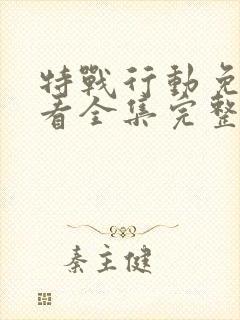 特戰行動免
看全集完整
秦主健